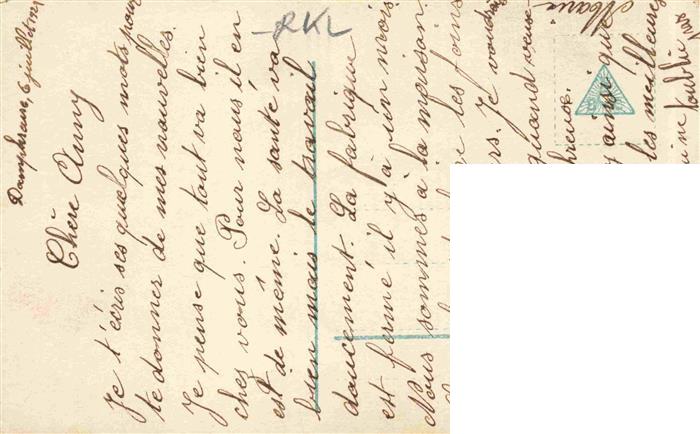 Damphreux, 6 juillet
Chère Anny
Je t'écris ses quelques mots pour
te donner de mes nouvelles.
Je pense que tout va bien
chez vous. Pour nous il en
est de même. La santé va
bien mais le travail
doucement. La fabrique
est fermé il y'à un mois
Nous sommes à la maison.
les foins
Je
quand
ainsi que
les meilleures
RKL